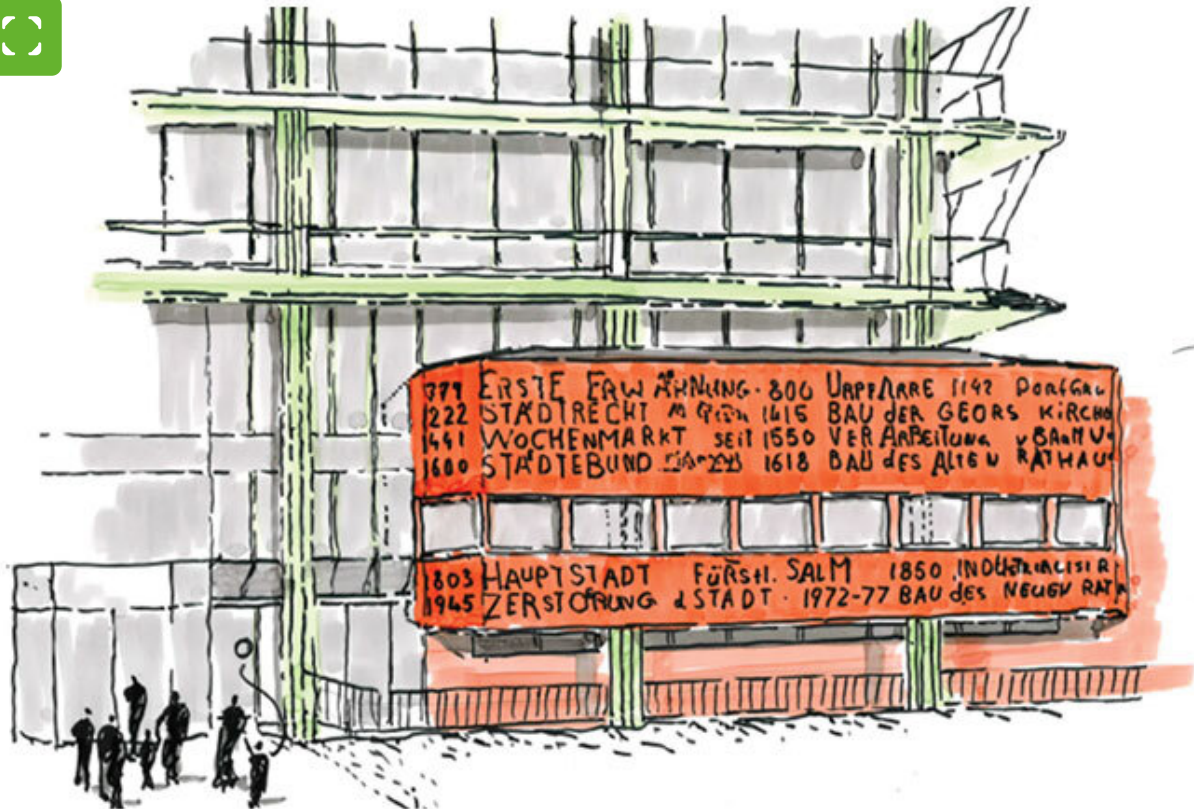 779 ERSTE ERWÄHNUNG · 800 URPFARRE 1142 DORFGAU
1222 STADTRECHT 1415 BAU DER GEORS KIRCHO
1441 WOCHENMARKT SEIT 1550 VERARBEITUNG v BAUMU
1600 STÄDTEBUND 1618 BAU des ALTEN RATHAU
1803 HAUPTSTADT FÜRStl. SALM 1850 INDUSTRIALISIR
1945 ZERSTÖRUNG d STADT · 1972-77 BAU des NEUEN RAT